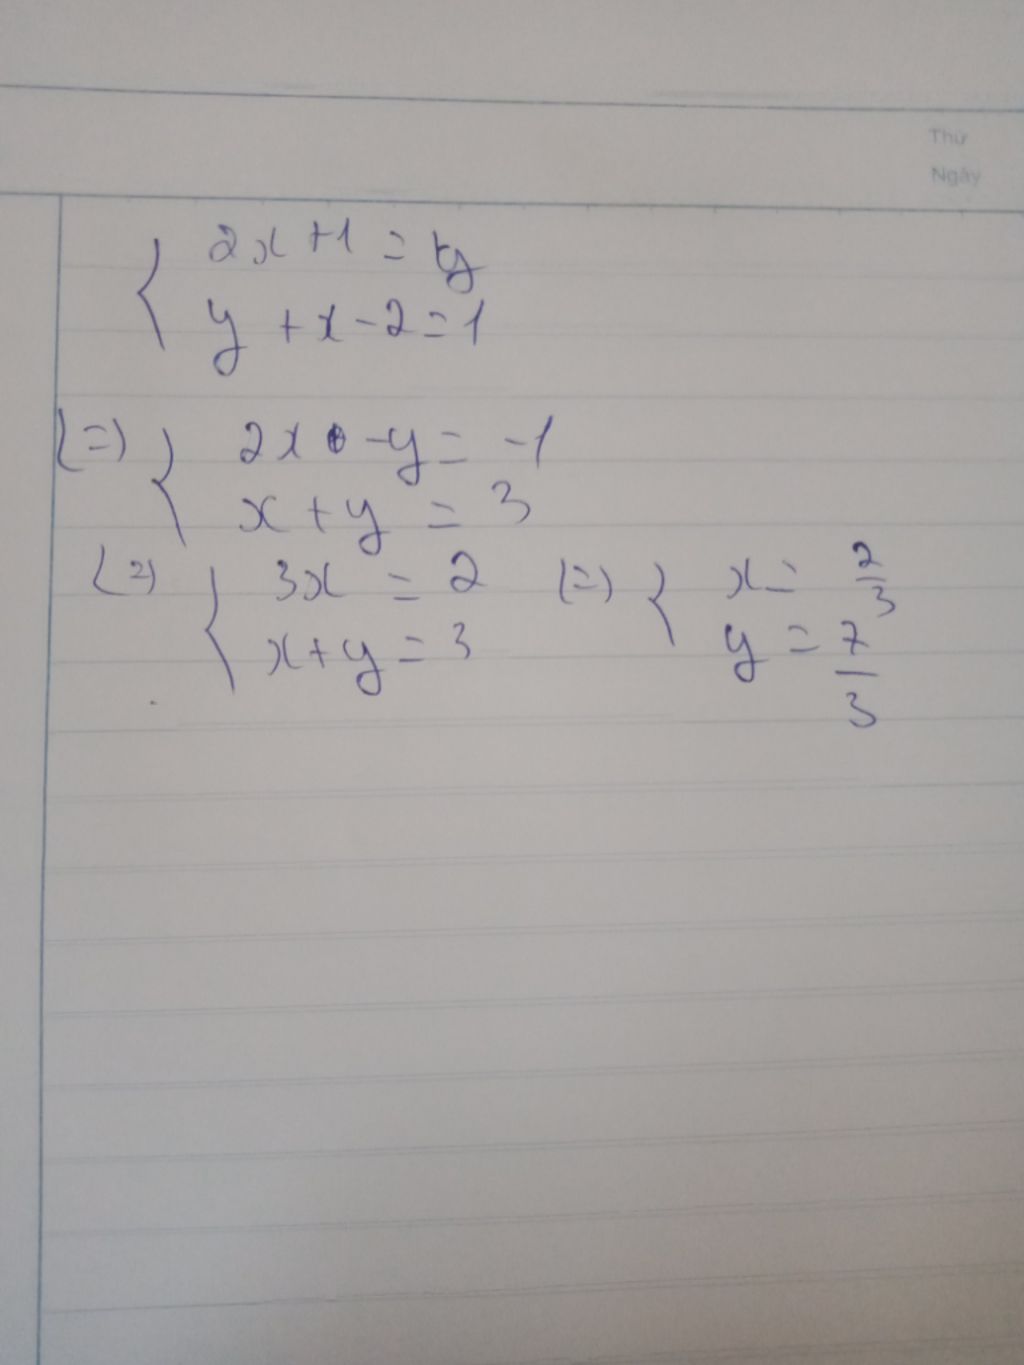 Thứ
Ngày
{ 2x + 1 = y
y + x - 2 = 1
(=) { 2x - y = -1
x + y = 3
(=) { 3x = 2 (=) { x = 2/3
x + y = 3 y = 7/3